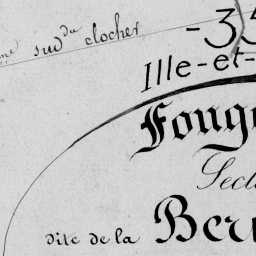 sud du clocher
- 35
Ille-et-
Foug
Sect
dite de la Ber